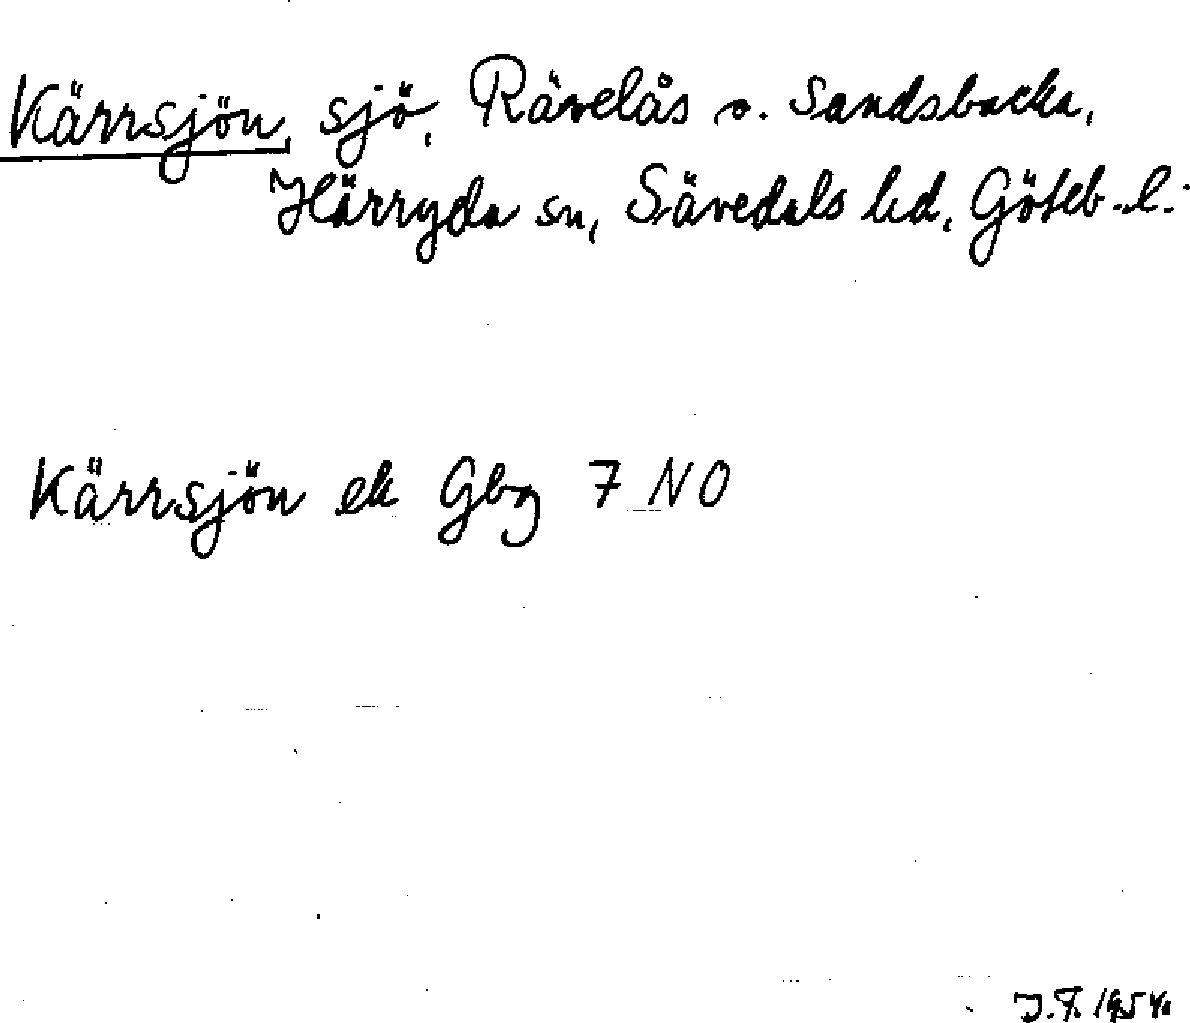 Kärrsjön, sjö, Rävelås o. Sandsbacka,
Härryda sn, Sävedals hd, Göteb.-l.
Kärrsjön ek Gbg 7 NO
J.F. 1954